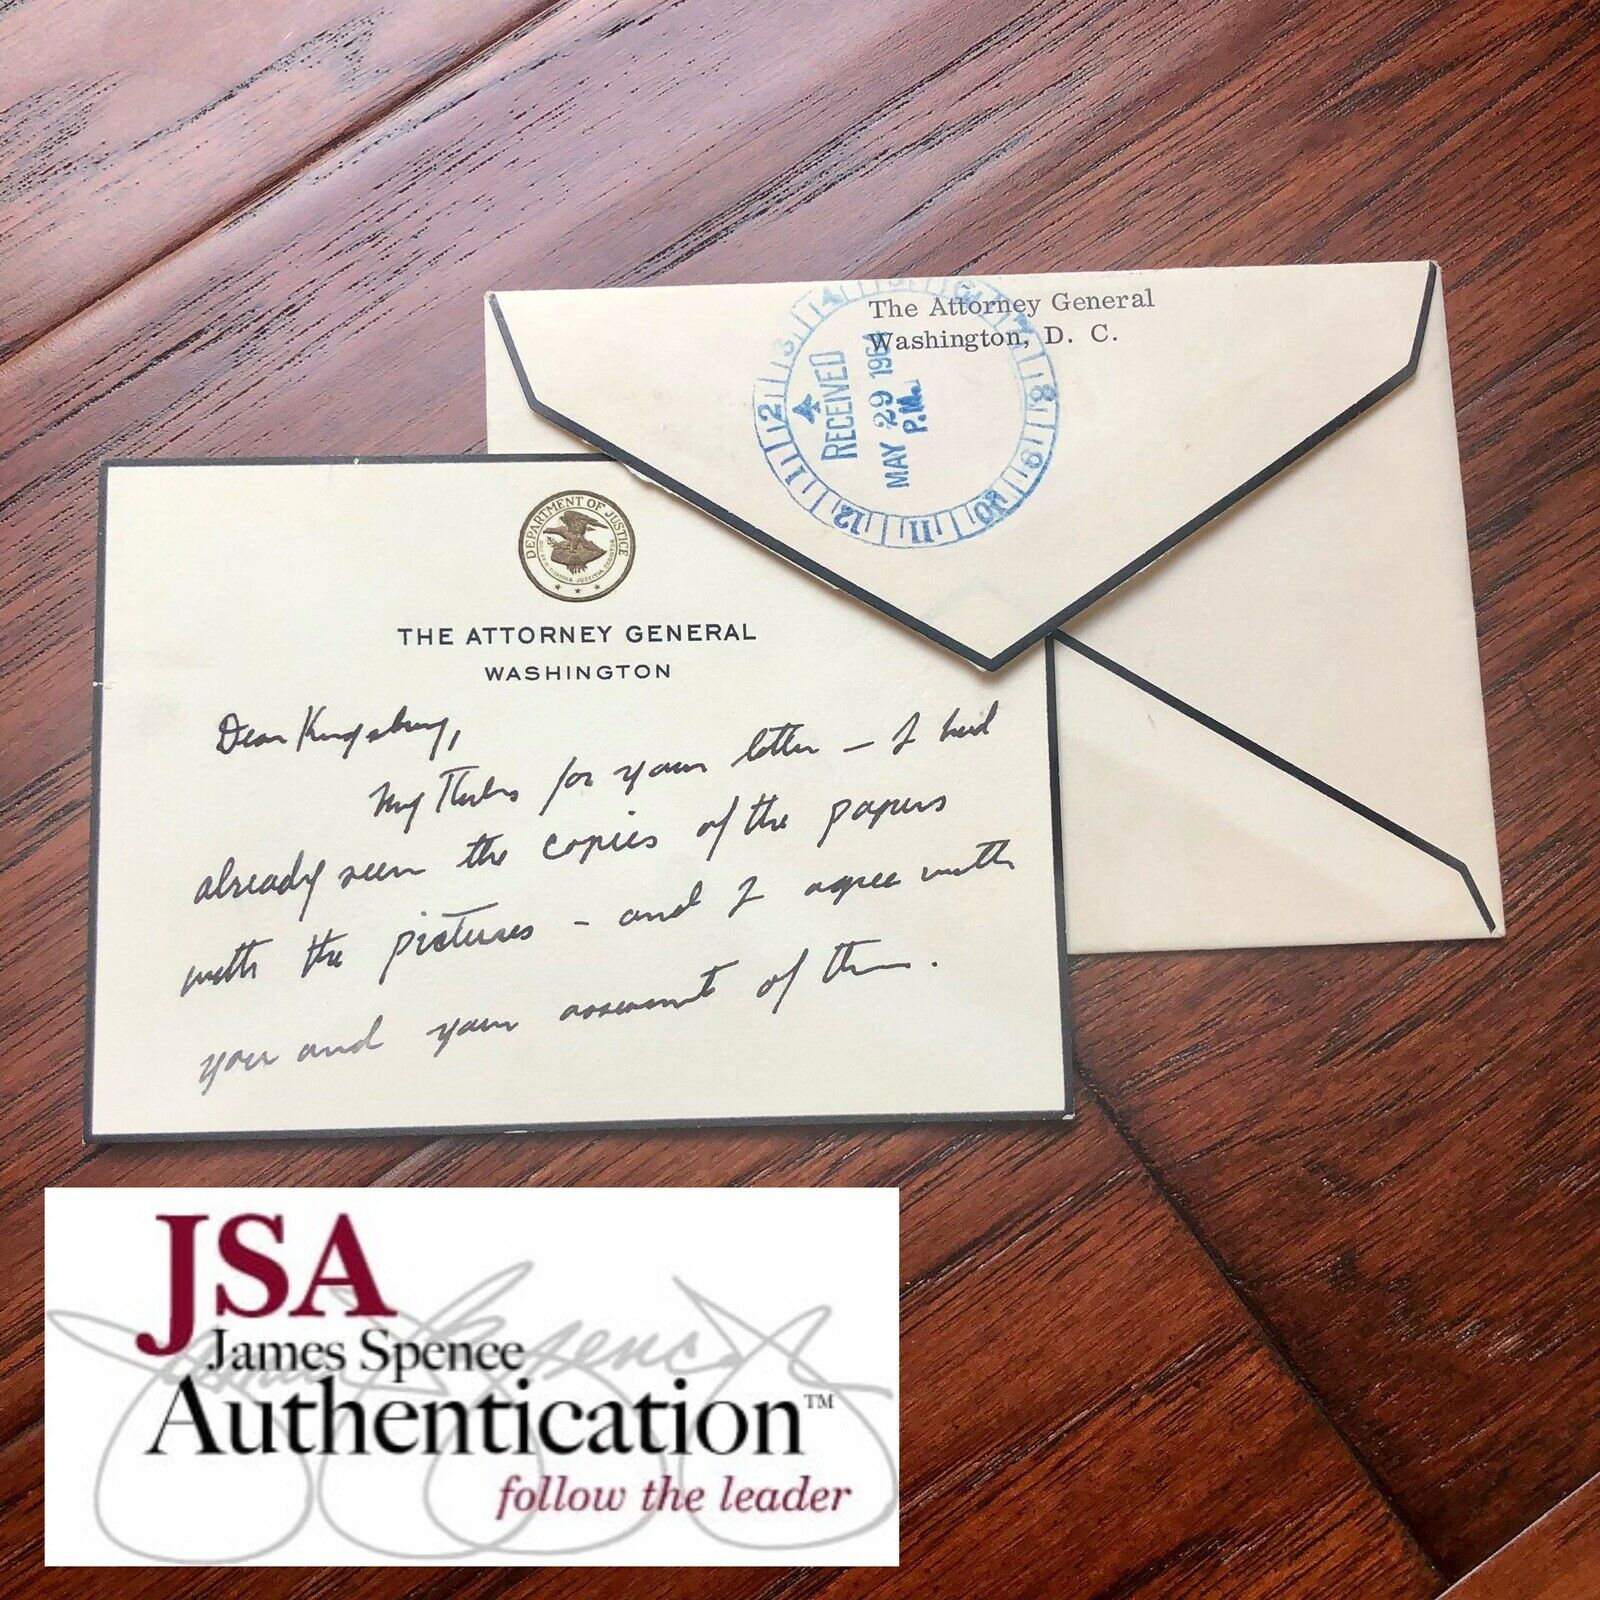 The Attorney General
Washington, D. C.
RECEIVED
MAY 29 1964
P.M.
12 1 2 3 4 5 6 7 8 9 10 11
DEPARTMENT OF JUSTICE
THE ATTORNEY GENERAL
WASHINGTON
Dear Kingsbury,
My Thanks for your letter – I had
already seen the copies of the papers
with the pictures – and I agree with
you and your assessment of them.
JSA
James Spence
Authentication™
follow the leader